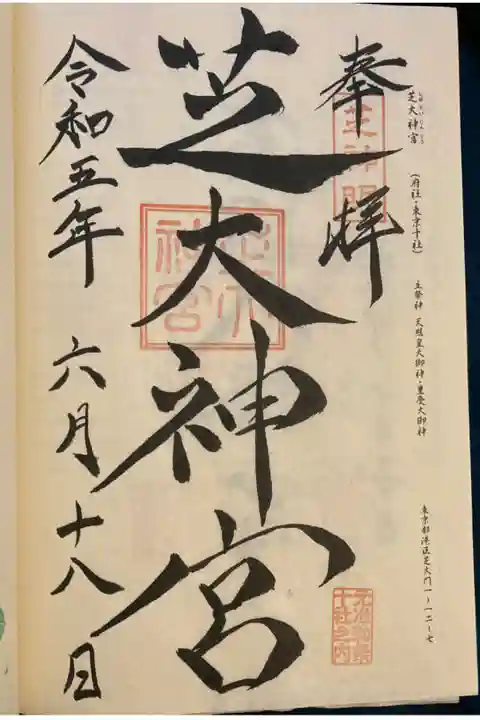 芝大神宮
しばだいじんぐう
(府社・東京十社)
主祭神 天照皇大御神・豊受大御神
東京都港区芝大門一-一二-七
奉拝
芝神明
芝大神宮
芝大神宮
令和五年 六月十八日